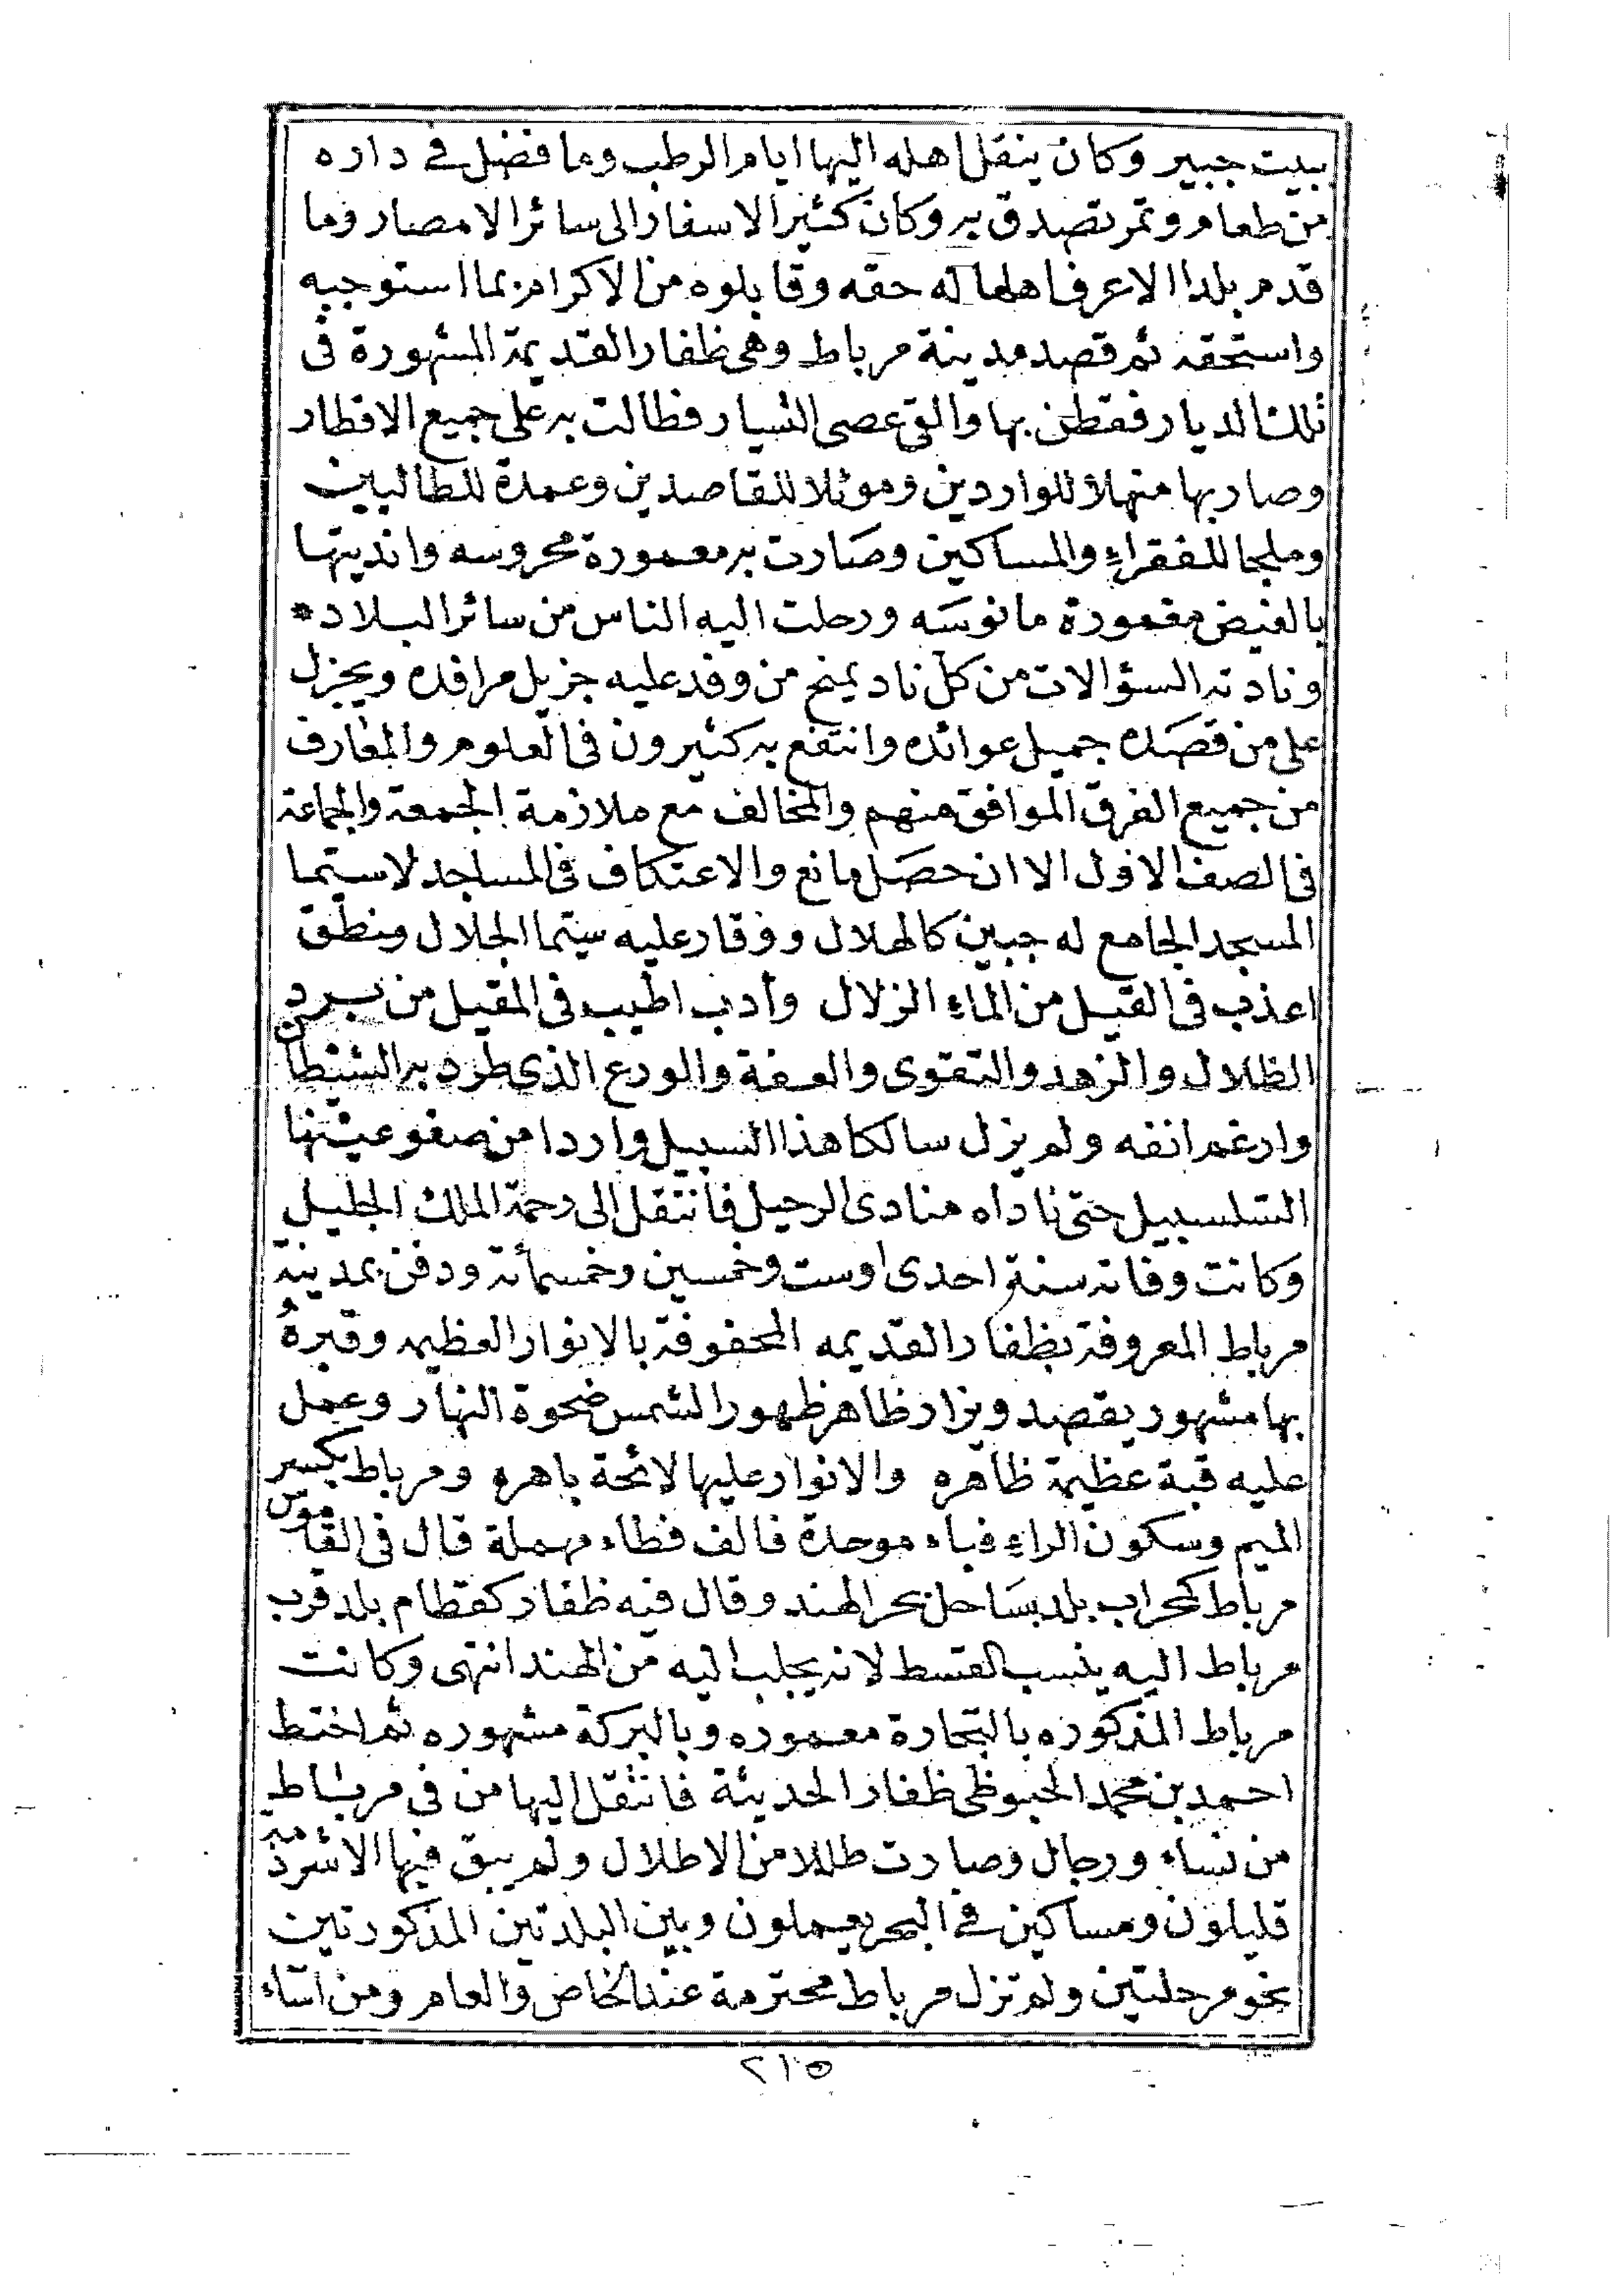 ببيت جبير وكان ينقل اهله اليها ايام الرطب وما فضل في داره
من طعام وتمر تصدق به وكان كثير الاسفار الى سائر الامصار وما
قدم بلدا الا عرف اهلها له حقه وقابلوه من الاكرام بما استوجبه
واستحقه ثم قصد مدينة مرباط وهى ظفار القديمة المشهورة فى
تلك الديار فقطن بها والقى عصى التسيار فطالت به على جميع الاقطار
وصار بها منهلا للواردين وموئلا للقاصدين وعمدة للطالبين
وملجا للفقراء والمساكين وصارت به معمورة محروسه وانديتها
بالفيض مغمورة مانوسه ورحلت اليه الناس من سائر البلاد *
ونادته السؤالات من كل ناد يمنح من وفد عليه جزيل مرافده ويجزل
على من قصده جميل عوائده وانتفع به كثيرون فى العلوم والمعارف
من جميع الفرق الموافق منهم والمخالف مع ملازمة الجمعة والجماعة
فى الصف الاول الا ان حصل مانع والاعتكاف فى المساجد لاسيما
المسجد الجامع له جبين كالهلال ووقار عليه سيما الجلال ومنطق
اعذب فى القيل من الماء الزلال وأدب اطيب فى المقيل من برد
الظلال والزهد والتقوى والعفة والورع الذى طرد به الشيطان
وارغم انفه ولم يزل سالكا هذا السبيل واردا من صفو عينها
السلسبيل حتى ناداه منادى الرحيل فانتقل الى رحمة الملك الجليل
وكانت وفاته سنة احدى اوست وخمسين وخمسمأئة ودفن بمدينة
مرباط المعروفة بظفار القديمه المحفوفة بالانوار العظيمه وقبره
بها مشهور يقصد ويزار ظاهر ظهور الشمس ضحوة النهار وعمل
عليه قبة عظيمة ظاهره والانوار عليها لائحة باهره ومرباط بكسر
الميم وسكون الراء فباء موحدة فالف فطاء مهملة قال فى القاموس
مرباط كمحراب بلد بساحل بحر الهند وقال فيه ظفار كقطام بلد قرب
مرباط اليه ينسب القسط لانه يجلب اليه من الهند انتهى وكانت
مرباط المذكوره بالتجارة معموره وبالبركة مشهوره ثم اختط
احمد بن محمد الحبوظى ظفار الحديثة فانتقل اليها من فى مرباط
من نساء ورجال وصارت طللا من الاطلال ولم يبق فيها الا شرذمه
قليلون ومساكين في البحر يعملون وبين البلدتين المذكورتين
نحو مرحلتين ولم تزل مرباط محترمة عند الخاص والعام ومن اساء
٢١٥